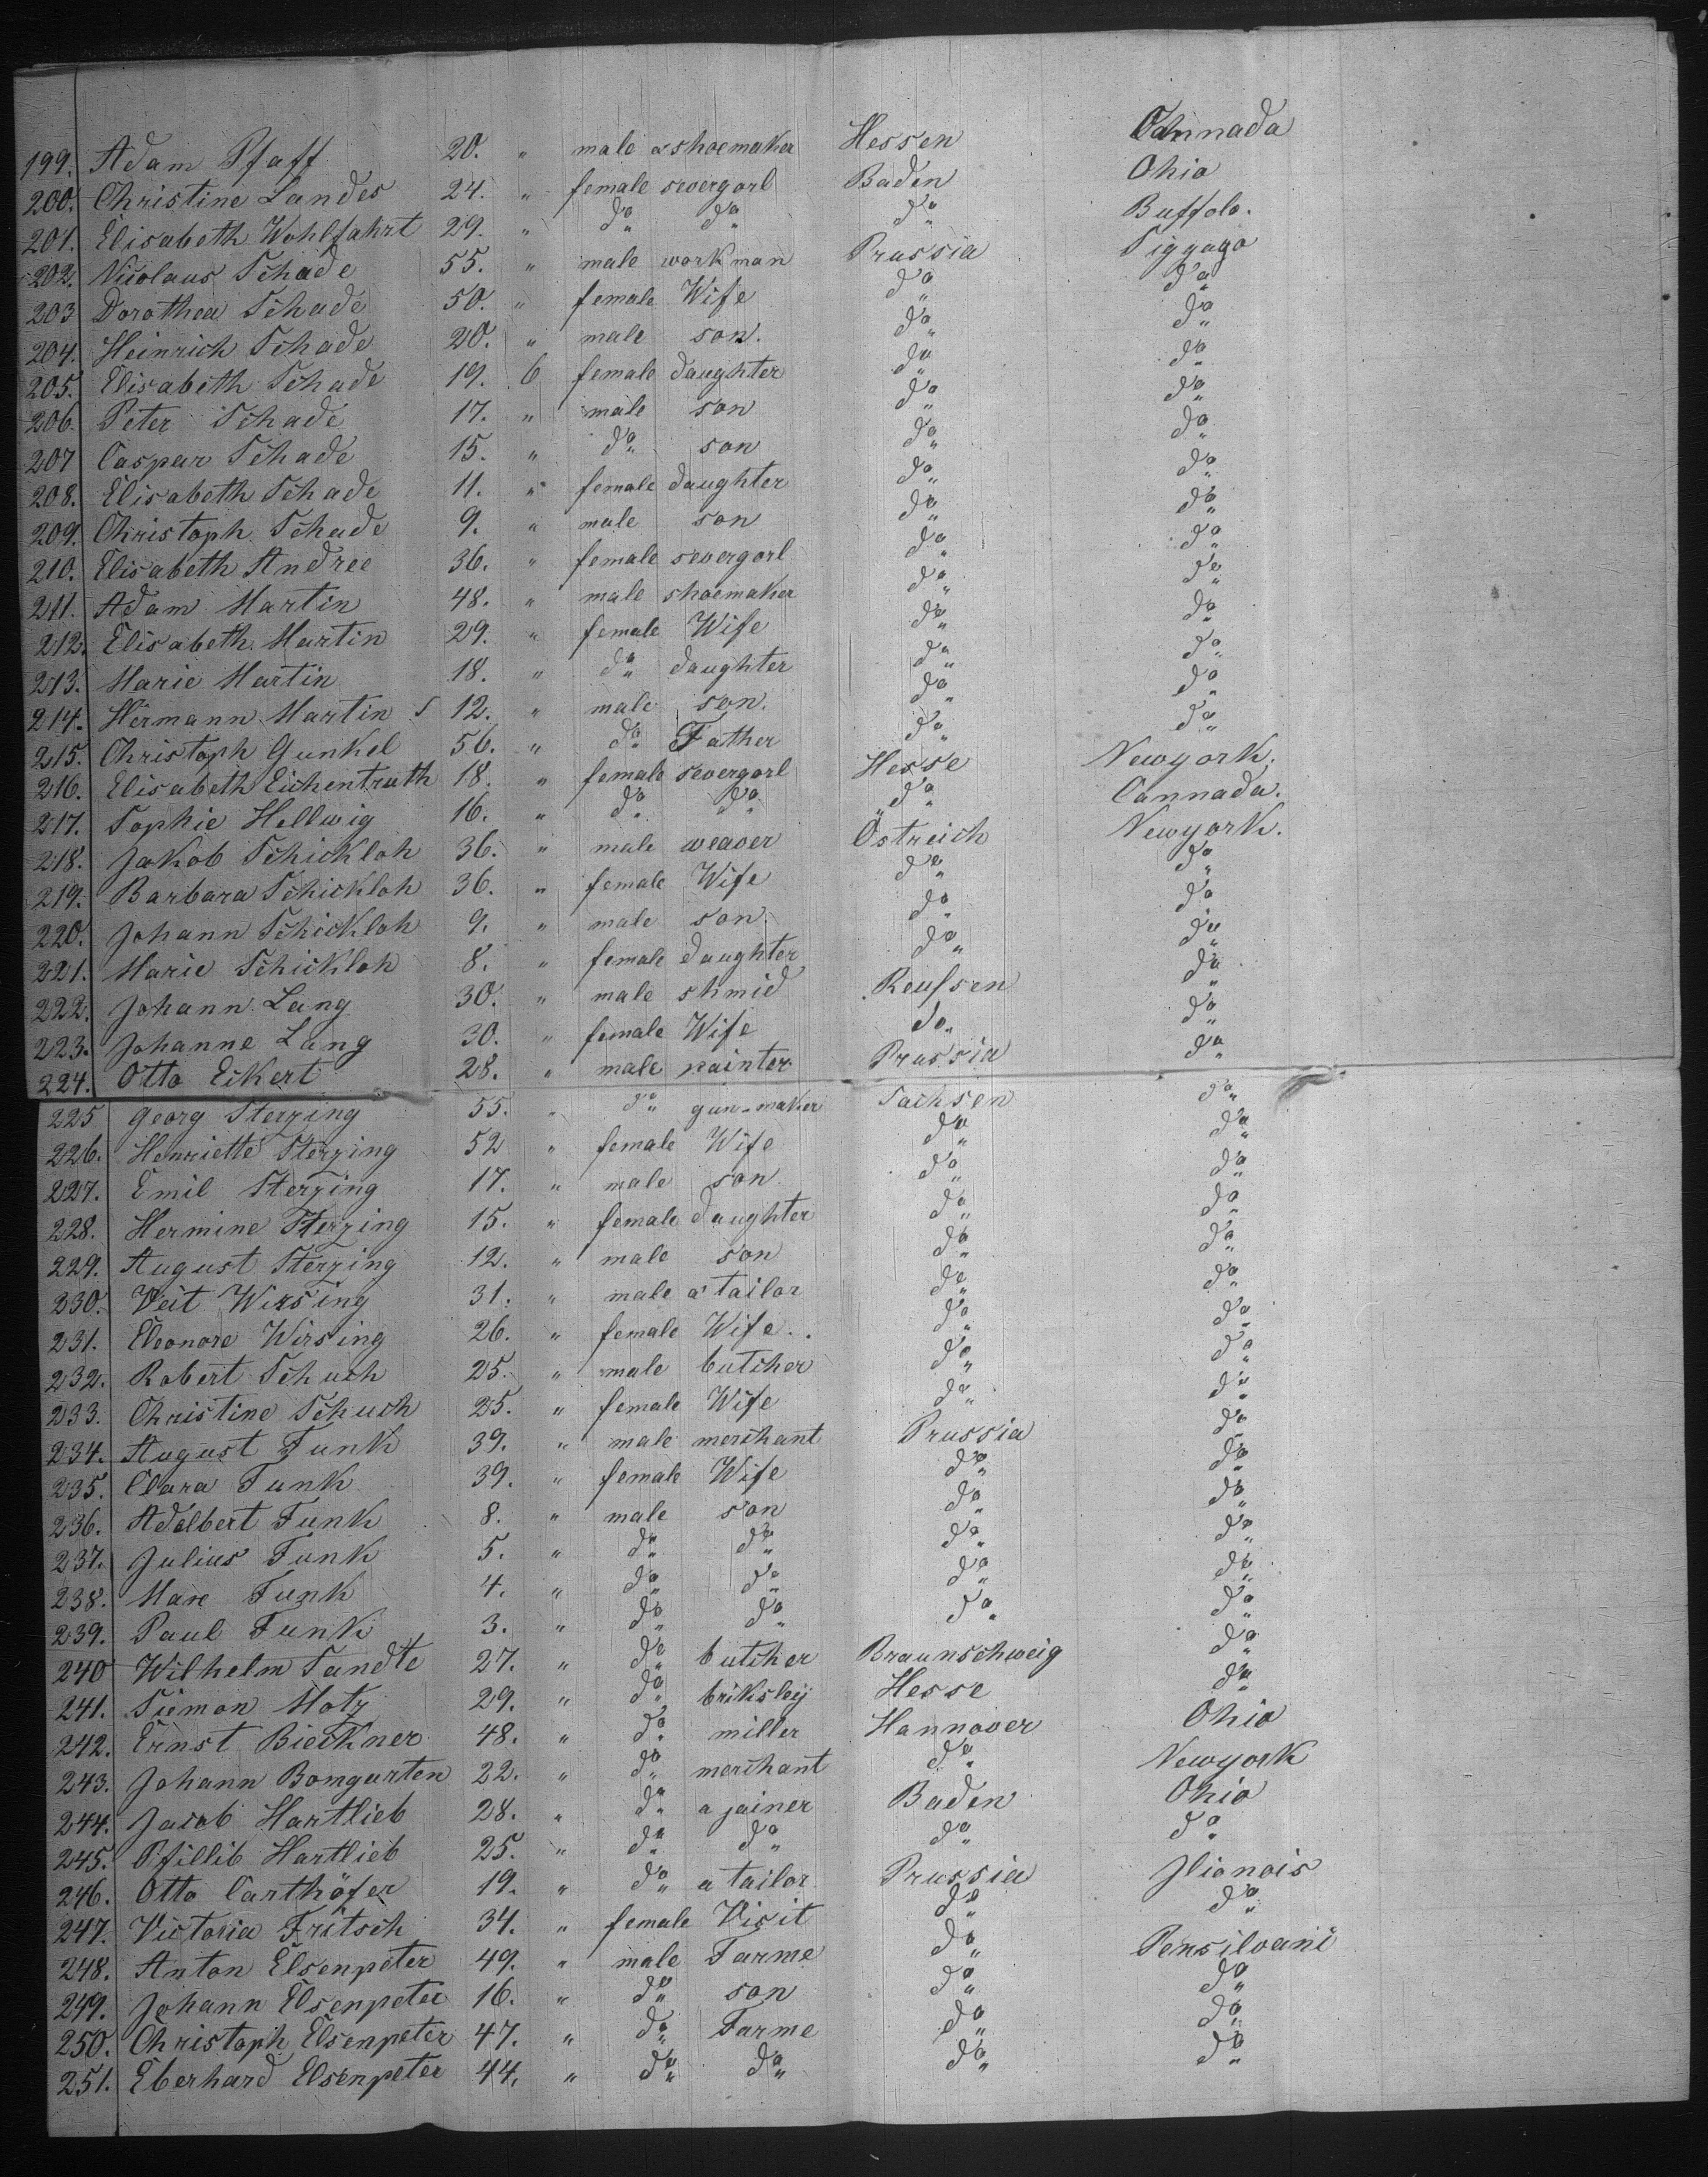 199. Adam Pfaff 20. " male a shoemaker Hessen Cannada
200. Christine Landes 24. " female severgorl Baden Ohio
201. Elisabeth Wohlfahrt 29. " do do do Buffolo.
202. Nicolaus Schade 55. " male workman Prussia Siggago
203 Dorothea Schade 50. " female Wife do do
204. Heinrich Schade 20. " male son. do do
205. Elisabeth Schade 19. 6 female daughter do do
206. Peter Schade 17. " male son do do
207 Caspar Schade 15. " do son do do
208. Elisabeth Schade 11. " female daughter do do
209. Christoph Schade 9. " male son do do
210. Elisabeth Andree 36. " female severgorl do do
211. Adam Martin 48. " male shoemaker do do
212. Elisabeth Martin 29. " female Wife do do
213. Marie Martin 18. " do daughter do do
214. Hermann Martin 12. " male son. do do
215. Christoph Gunkel 56. " do Father do do
216. Elisabeth Eichentruth 18. " female severgorl Hesse Newyork.
217. Sophie Hellwig 16. " do do do Cannada.
218. Jakob Schickloh 36. " male weaver Östreich Newyork.
219. Barbara Schickloh 36. " female Wife do do
220. Johann Schickloh 9. " male son. do do
221. Marie Schickloh 8. " female daughter do do
222. Johann Lang 30. " male shmid Reussen do
223. Johanne Lang 30. " female Wife do do
224. Otto Eckert 28. " male painter Prussia do
225 Georg Sterzing 55. " do gun-maker Sachsen do
226. Henriette Sterzing 52 " female Wife do do
227. Emil Sterzing 17. " male son. do do
228. Hermine Sterzing 15. " female daughter do do
229. August Sterzing 12. " male son do do
230. Veit Wirsing 31. " male a tailor do do
231. Eleonore Wirsing 26. " female Wife.. do do
232. Robert Schuch 25. " male butcher do do
233. Christine Schuch 25. " female Wife do do
234. August Funk 39. " male merchant Prussia do
235. Clara Funk 39. " female Wife do do
236. Adelbert Funk 8. " male son do do
237. Julius Funk 5. " do do do do
238. Marx Funk 4. " do do do do
239. Paul Funk 3. " do do do do
240 Wilhelm Sandte 27. " do butcher Braunschweig do
241. Siemon Motz 29. " do briksley Hesse do
242. Ernst Bieckner 48. " do miller Hannover Ohio
243. Johann Bomgarten 22. " do merchant do Newyork
244. Jacob Hartlieb 28. " do a jainer Baden Ohio
245. Pfillib Hartlieb 25. " do do do do
246. Otto Carthöfer 19. " do a tailor Prussia Jlionois
247. Victoria Fritsch 34. " female Visit do do
248. Anton Elsenpeter 49. " male Farme do Pensilvani
249. Johann Elsenpeter 16. " do son do do
250. Christoph Elsenpeter 47. " do Farme do do
251. Eberhard Elsenpeter 44. " do do do do